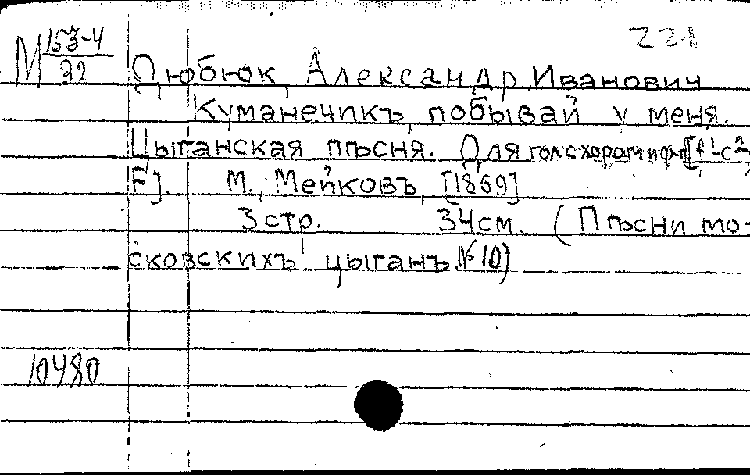 221
М 153-4
22
Дюбюк, Александр Иванович
Куманечикъ, побывай у меня.
Цыганская пѣсня. Для голоса хора и ф-п [f¹-c²
F]. М., Мейковъ, [1869]
3 стр. 34 см. (Пѣсни мо-
сковскихъ цыганъ №10)
10480